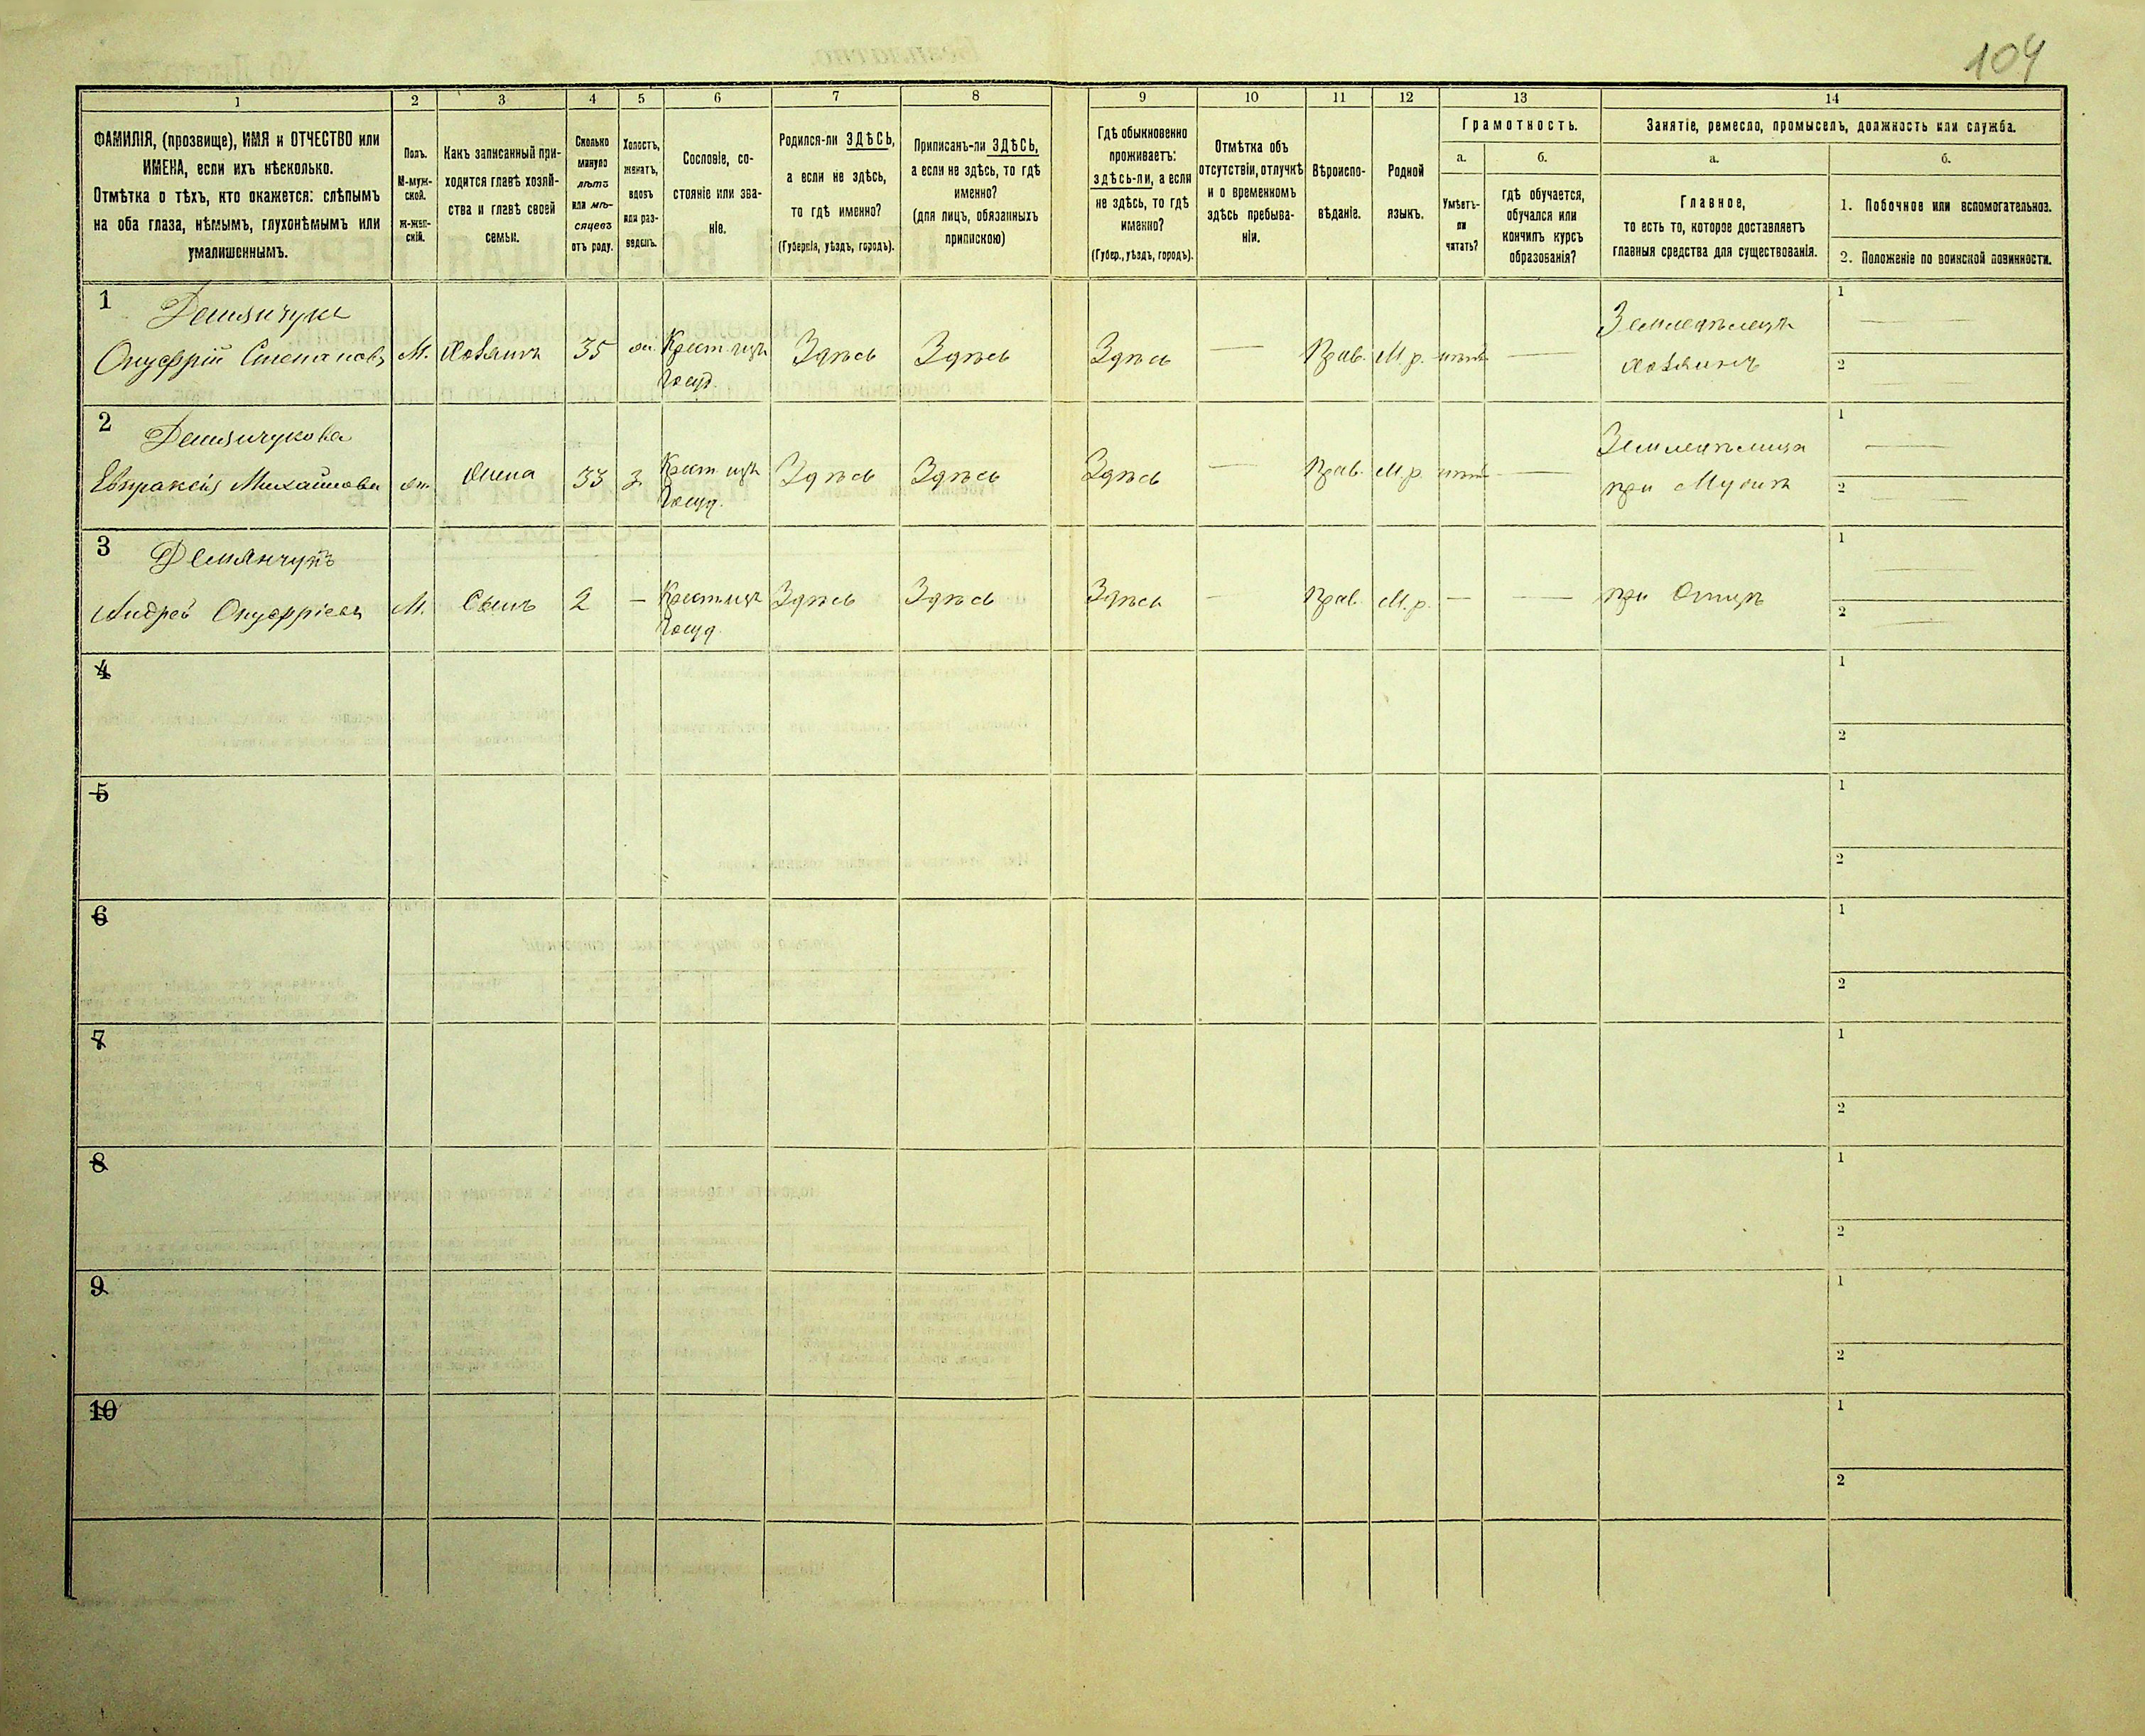 104
1 2 3 4 5 6 7 8 9 10 11 12 13 14
ФАМИЛІЯ, (прозвище), ИМЯ и ОТЧЕСТВО или
ИМЕНА, если ихъ нѣсколько.
Отмѣтка о тѣхъ, кто окажется: слѣпымъ
на оба глаза, нѣмымъ, глухонѣмымъ или
умалишеннымъ.
Полъ.
М-муж-
ской.
Ж-жен-
скій.
Какъ записанный при-
ходится главѣ хозяй-
ства и главѣ своей
семьи.
Сколько
минуло
лѣтъ
или мѣ-
сяцевъ
отъ роду.
Холостъ,
женатъ,
вдовъ
или раз-
веденъ.
Сословіе, со-
стояніе или зва-
ніе.
Родился-ли ЗДѢСЬ,
а если не здѣсь,
то гдѣ именно?
(Губернія, уѣздъ, городъ).
Приписанъ-ли ЗДѢСЬ,
а если не здѣсь, то гдѣ
именно?
(для лицъ, обязанныхъ
припискою)
Гдѣ обыкновенно
проживаетъ:
здѣсь-ли, а если
не здѣсь, то гдѣ
именно?
(Губер., уѣздъ, городъ).
Отмѣтка объ
отсутствіи, отлучкѣ
и о временномъ
здѣсь пребыва-
ніи.
Вѣроиспо-
вѣданіе.
Родной
языкъ.
Грамотность.
а.
Умѣетъ-
ли
читать?
б.
гдѣ обучается,
обучался или
кончилъ курсъ
образованія?
Занятіе, ремесло, промыселъ, должность или служба.
а.
Главное,
то есть то, которое доставляетъ
главныя средства для существованія.
б.
1. Побочное или вспомогательное.
2. Положеніе по воинской повинности.
1 Демянчукъ
Онуфрій Степановъ М. Хозяинъ 35 ж. Крест. изъ Здѣсь Здѣсь Здѣсь — Прав. М. р. нѣтъ — Земледѣлецъ 1 —
Госуд. хозяинъ 2 —
2 Демянчукова
Евпраксія Михайлова ж. Жена 33 з. Крест. изъ Здѣсь Здѣсь Здѣсь — Прав. М. р. нѣтъ — Земледѣлица 1 —
Госуд. при Мужѣ 2 —
3 Демянчукъ
Андрей Онуфріевъ М. Сынъ 2 — Крест. изъ Здѣсь Здѣсь Здѣсь — Прав. М. р. — — при Отцѣ 1 —
Госуд. 2 —
4 1
2
5 1
2
6 1
2
7 1
2
8 1
2
9 1
2
10 1
2